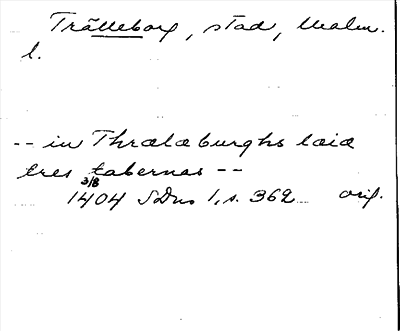 Trälleborg, stad, Malm.
l.
-- in Thralaburghs laia
tres tabernas --
3/8
1404 SDns 1, s. 362 orig.